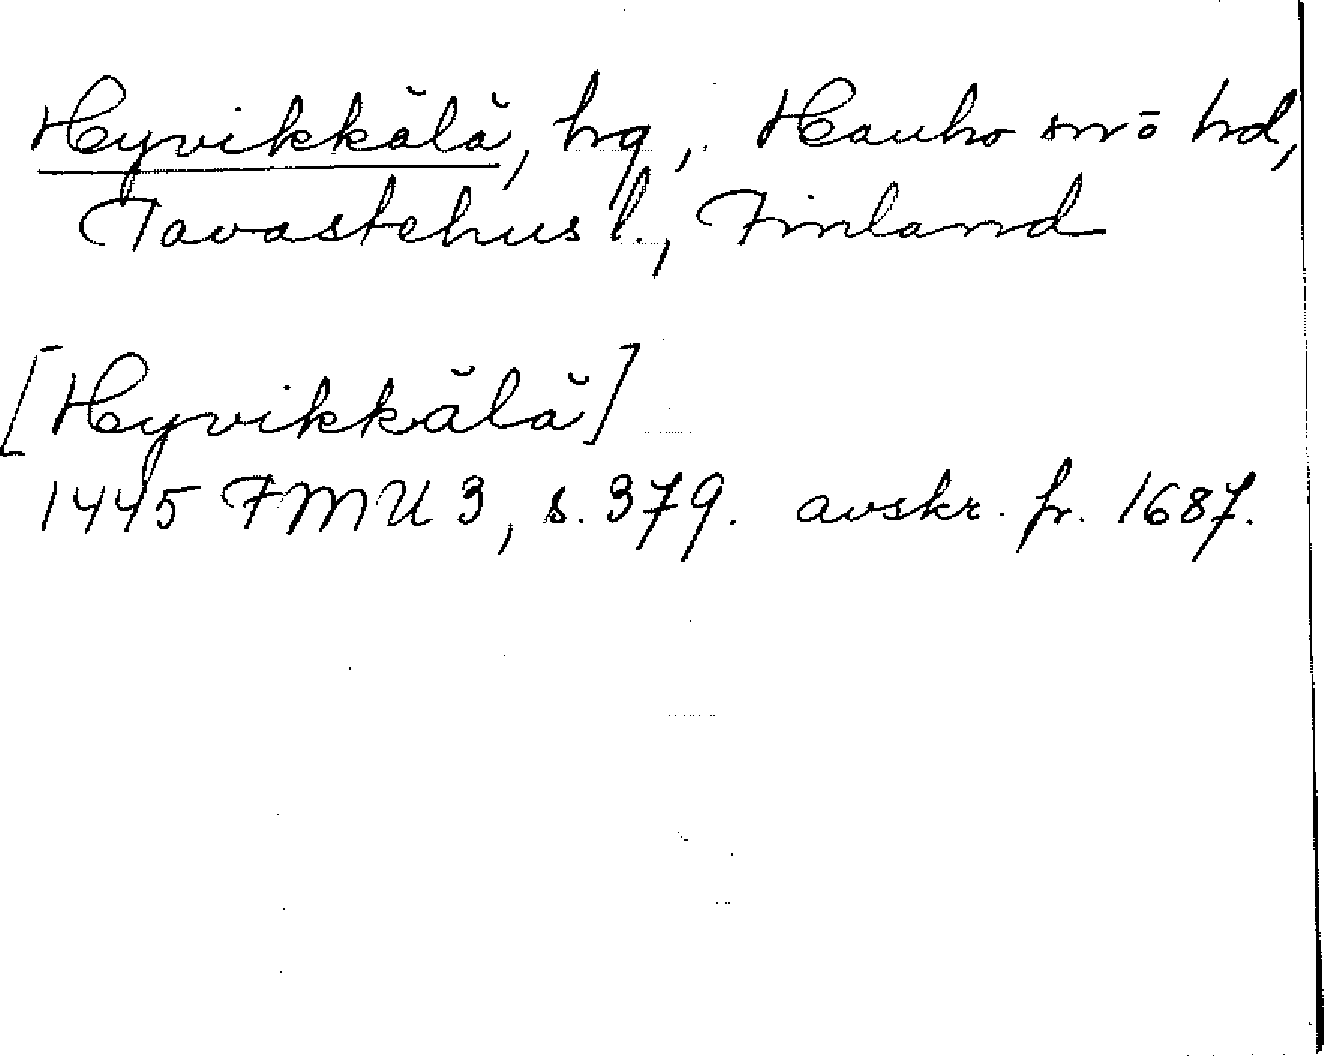 Hyvikkälä, hg, Hauho sn o hd,
Tavastehus l., Finland
[Hyvikkälä]
1445 FMU 3, s. 379. avskr. fr. 1687.